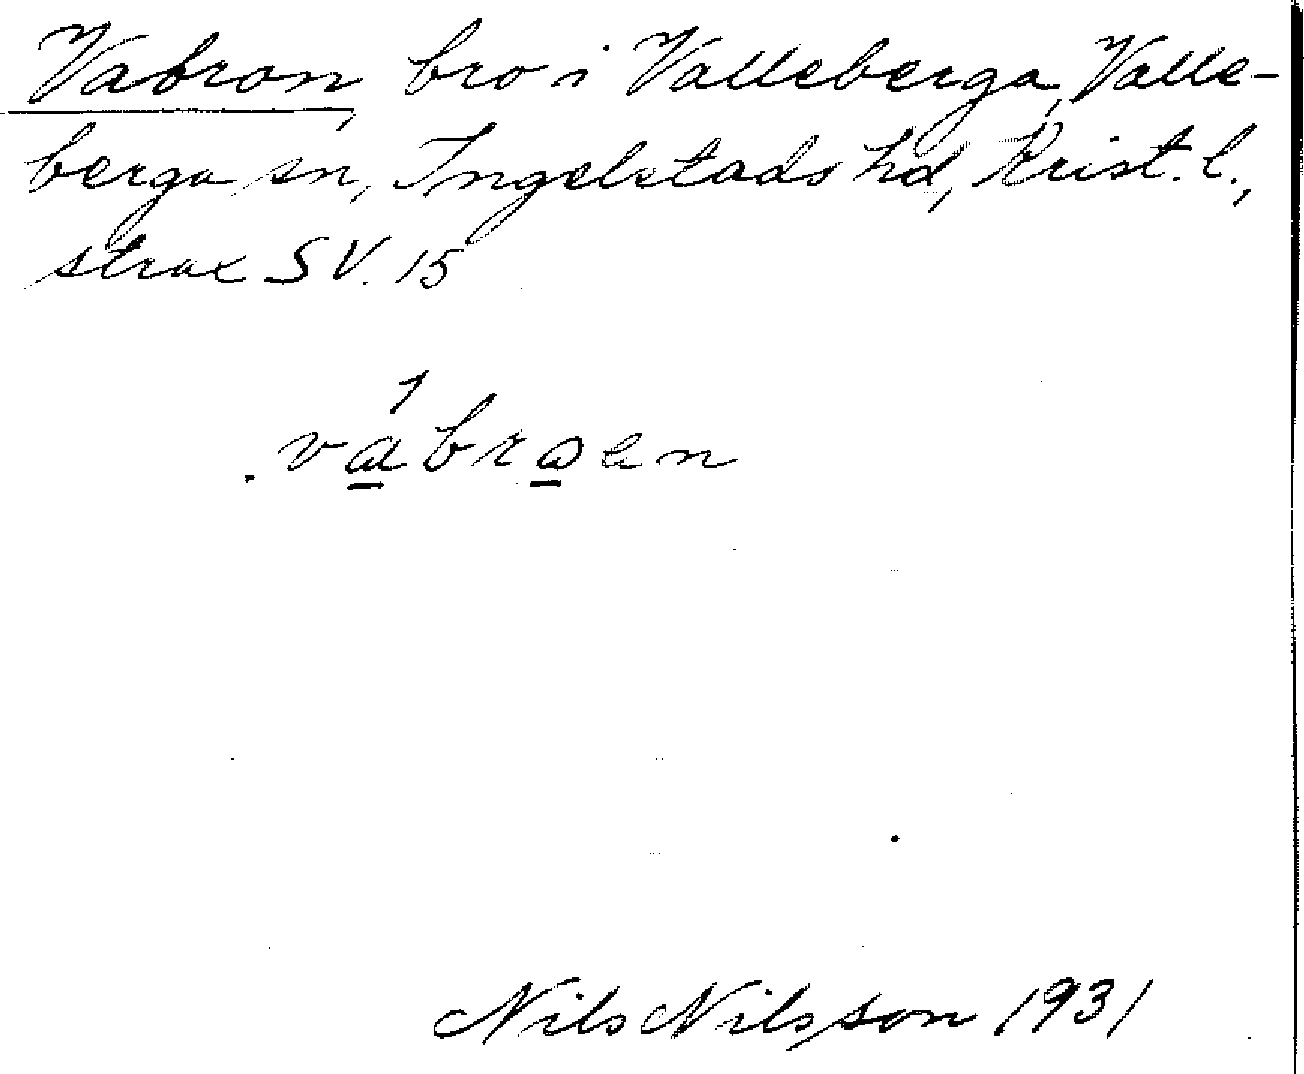 Vabron, bro i Valleberga, Valle-
berga sn, Ingelstads hd, Krist. l.,
strax SV. 15
vábroen
Nils Nilsson 1931